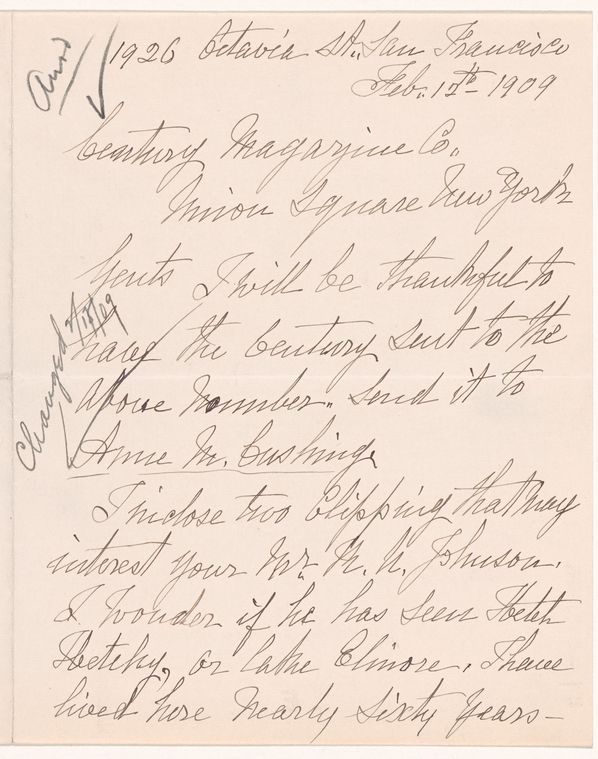 Ansd
1926 Octavia St., San Francisco
Feb. 12th 1909
Century Magazine Co.,
Union Square New York
Gents I will be thankful to
have the Century sent to the
above number. Send it to
Anne M. Cushing.
Changed 2/18/09
I inclose two Clipping that may
interest your Mr. R. U. Johnson.
I wonder if he has seen Hetch
Hetchy, or lake Elinore. I have
lived here nearly sixty years—